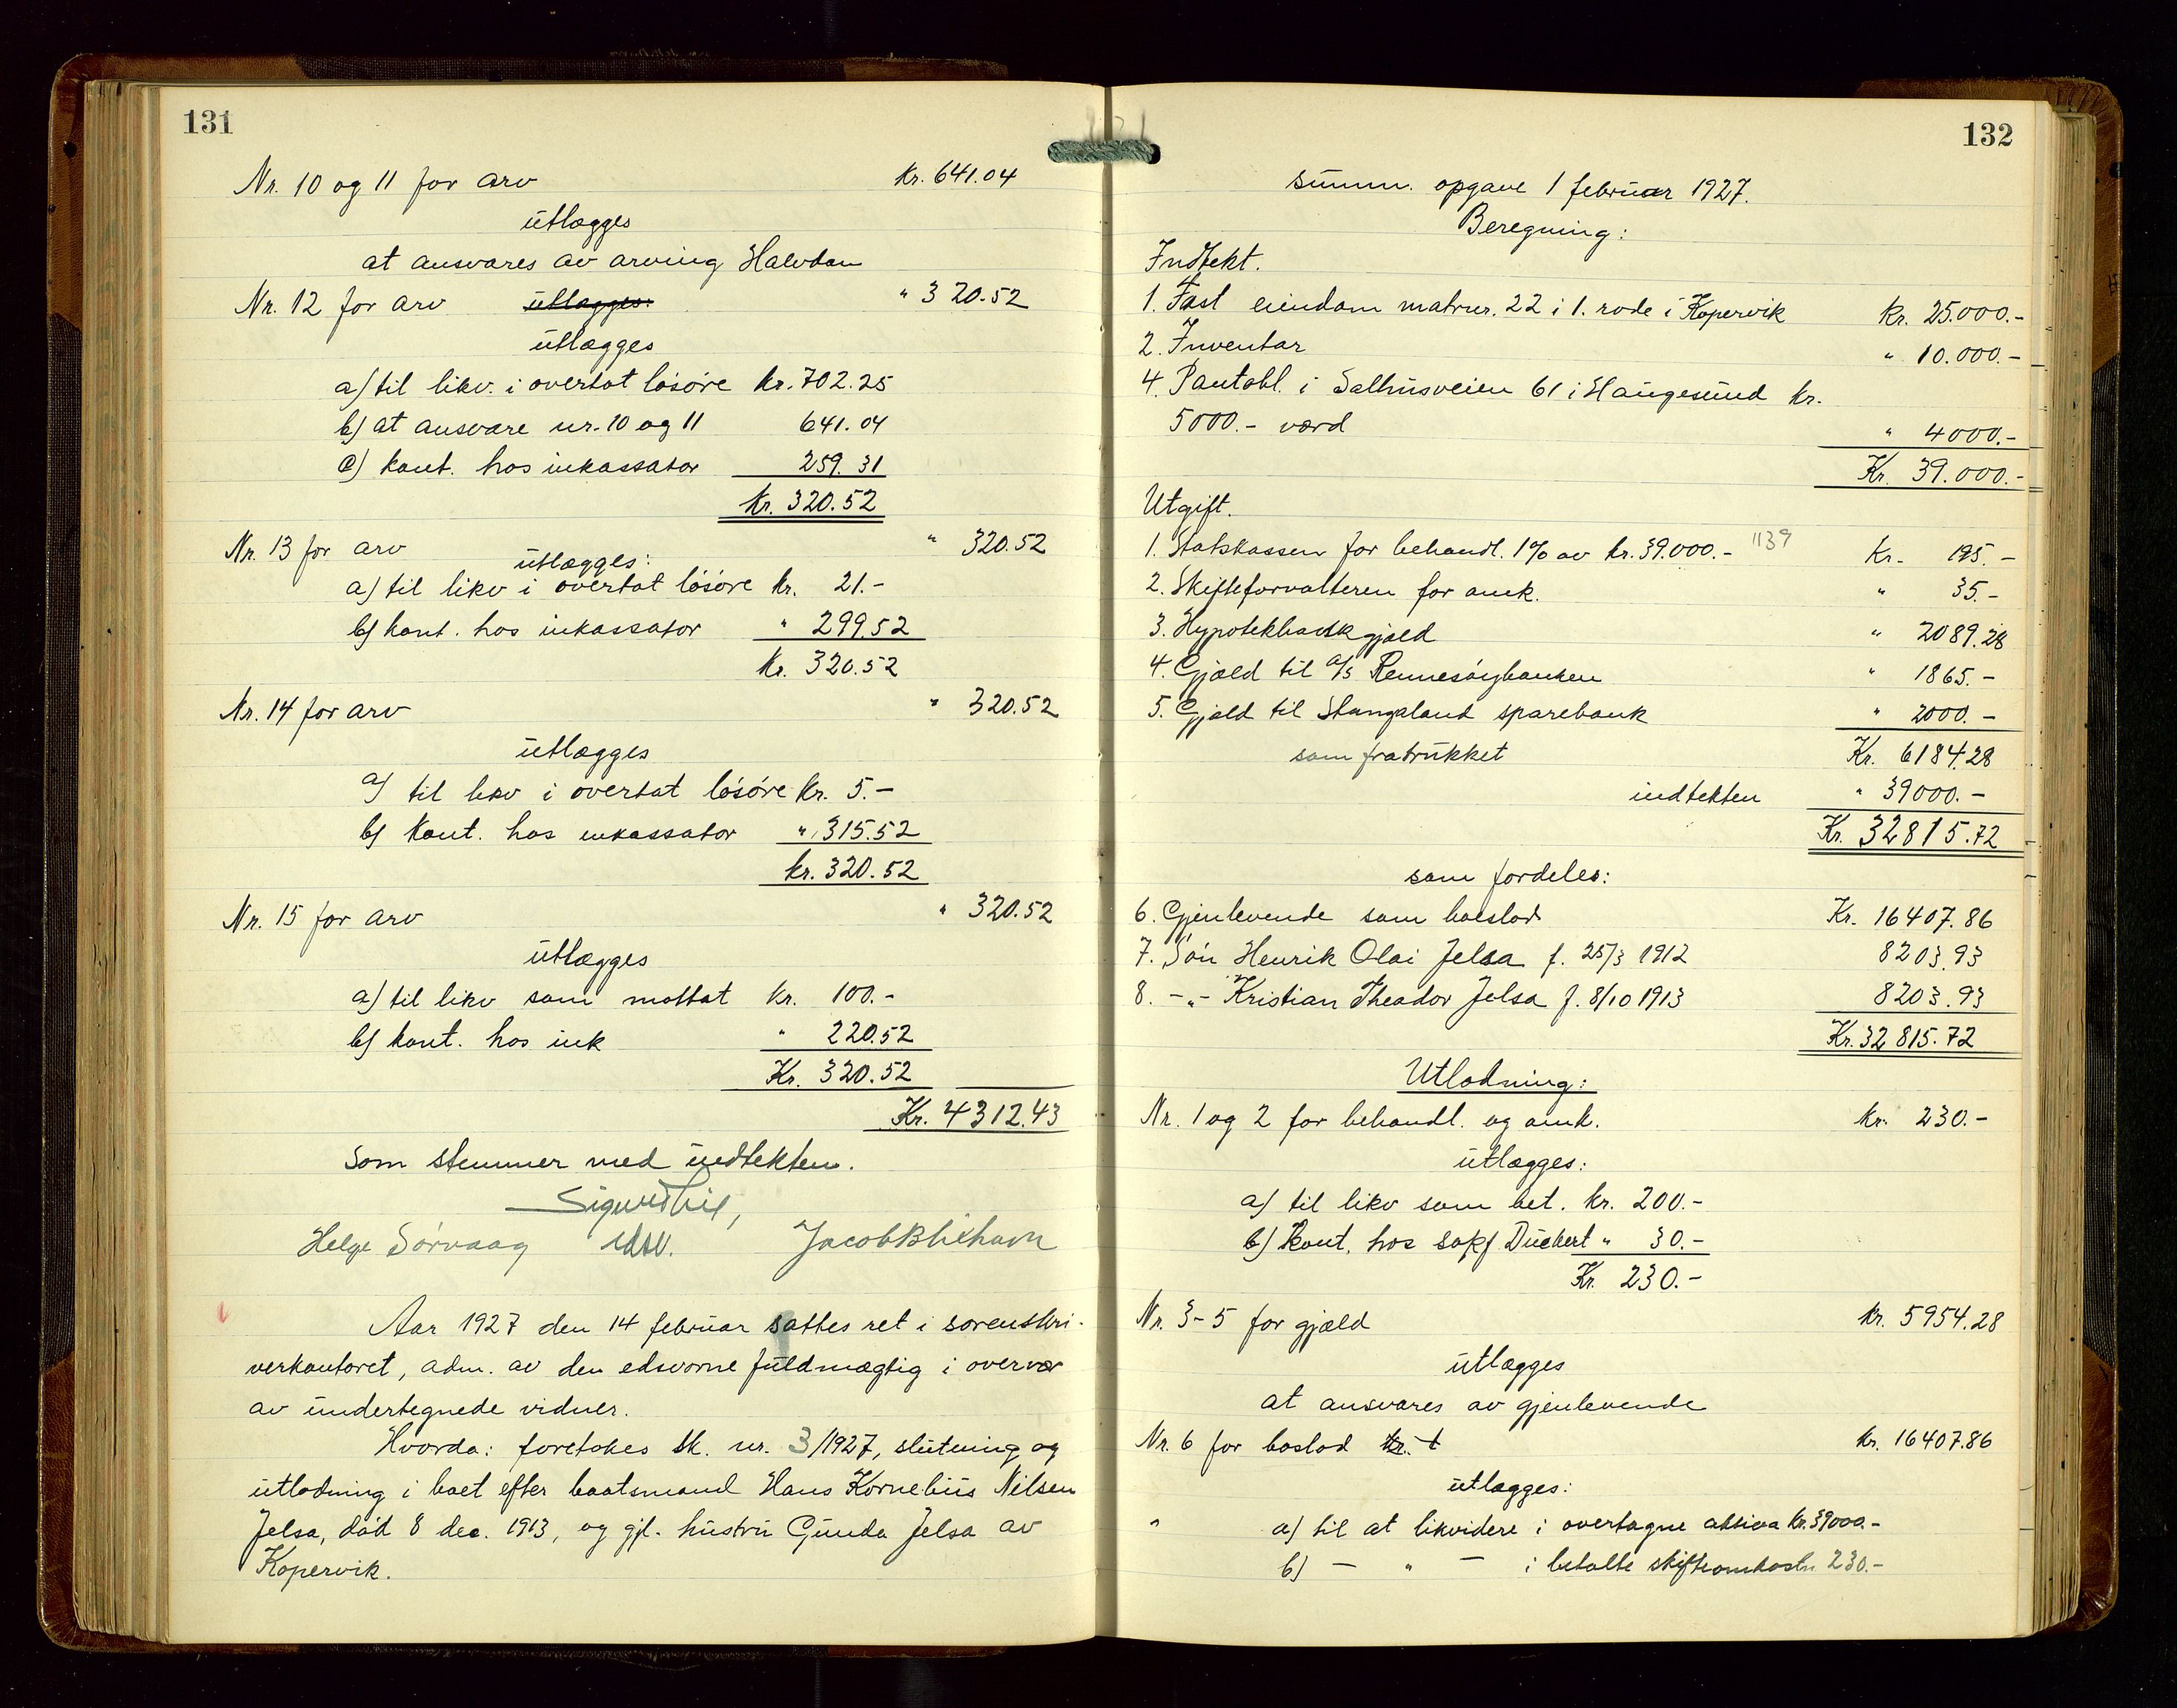 131
Nr. 10 og 11 for arv kr. 641.04
utlægges
at ansvares av arving Halvdan
Nr. 12 for arv utlægges: " 320.52
utlægges
a) til likv. i overtat løsøre kr. 702.25
b) at ansvare nr. 10 og 11 641.04
c) kont. hos inkassator 259.31
kr. 320.52
Nr. 13 for arv " 320.52
utlægges:
a) til likv i overtat løsøre kr. 21.-
b) kont. hos inkassator " 299.52
Kr. 320.52
Nr. 14 for arv " 320.52
utlægges
a) til likv i overtat løsøre kr. 5.-
b) kont. hos inkassator " 315.52
kr. 320.52
Nr. 15 for arv " 320.52
utlægges
a) til likv som mottat kr. 100.-
b) kont. hos ink " 220.52
Kr. 320.52
Kr. 4312.43
som stemmer med indtekten.
Helge Sørvaag
Aar 1927 den 14 februar sattes ret i sorenskri-
verkontoret, adm. av den edsvorne fuldmægtig i overvær
av undertegnede vidner.
Hvorda: foretokes sk. nr. 3/1927, slutning og
utlodning i boet efter baatsmand Hans Kornelius Nilsen
Jelsa, død 8 dec. 1913, og gjl. hustru Gunda Jelsa av
Kopervik.
132
summ. opgave 1 februar 1927.
Beregning:
Indtekt.
1. Fast eiendom matrnr. 22 i 1. rode i Kopervik kr. 25.000.-
2. Inventar " 10.000.-
4. Pantobl. i Salhusveien 61 i Haugesund kr.
5000.- værd " 4000.-
Kr. 39.000.-
Utgift.
1. Statskassen for behandl. 1% av kr. 39.000.- 1139 Kr. 195.-
2. Skifteforvalteren for omk. " 35.-
3. Hypotekbankgjæld " 2089.28
4. Gjæld til A/S Rennesøybanken " 1865.-
5. Gjæld til Stangaland sparebank " 2000.-
som fratrukket Kr. 6184.28
indtekten " 39000.-
Kr. 32815.72
som fordeles:
6. Gjenlevende som boeslod Kr. 16407.86
7. Søn Henrik Olai Jelsa f. 25/3 1912 8203.93
8. -"- Kristian Theodor Jelsa f. 8/10 1913 8203.93
Kr. 32815.72
Utlodning:
Nr. 1 og 2 for behandl. og omk. kr. 230.-
utlægges:
a) til likv som bet. kr. 200.-
b) Kont. hos sakf. Duckert " 30.-
Kr. 230.-
Nr. 3-5 for gjæld kr. 5954.28
utlægges
at ansvares av gjenlevende
Nr. 6 for boslod kr. 16407.86
utlægges:
" a) til at likvidere i overtagne aktiva kr. 39000.-
b) - " - i betalte skifteomkostn 230.-